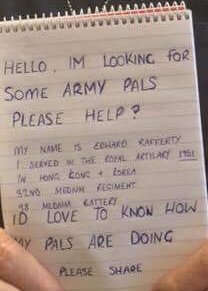 HELLO, IM LOOKING FOR
SOME ARMY PALS
PLEASE HELP?
MY NAME IS EDWARD RAFFERTY
I SERVED IN THE ROYAL ARTILARY 1951
IN HONG KONG + KOREA
92ND MEDIUM REGIMENT.
98 MEDIUM BATTERY
ID LOVE TO KNOW HOW
MY PALS ARE DOING
PLEASE SHARE